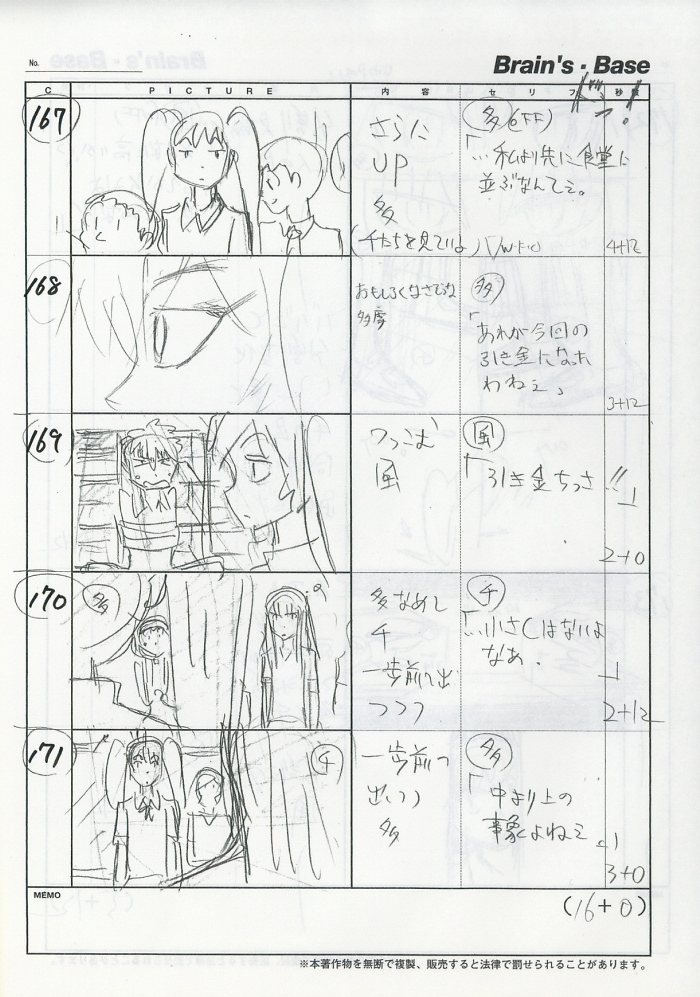 No.
Brain's・Base
C
PICTURE
内容
セリフ
秒数
167
さらに
UP
多
(チたちを見ていよ)
多(OFF)
「…私より先に食堂に
並ぶなんてぇ。
4+12
168
多
「あれが今回の
引き金になった
わねぇ」
3+12
169
つっこむ
風
風
「引き金ちっさ!!」
2+0
170
多
多なめし
チ
一歩前へ出
つつつ
チ
「…小さくはないよ
なあ。」
2+12
171
チ
一歩前へ
出つつ
多
多
「中より上の
事象よねぇ」
3+0
MEMO
(16+0)
※本著作物を無断で複製、販売すると法律で罰せられることがあります。